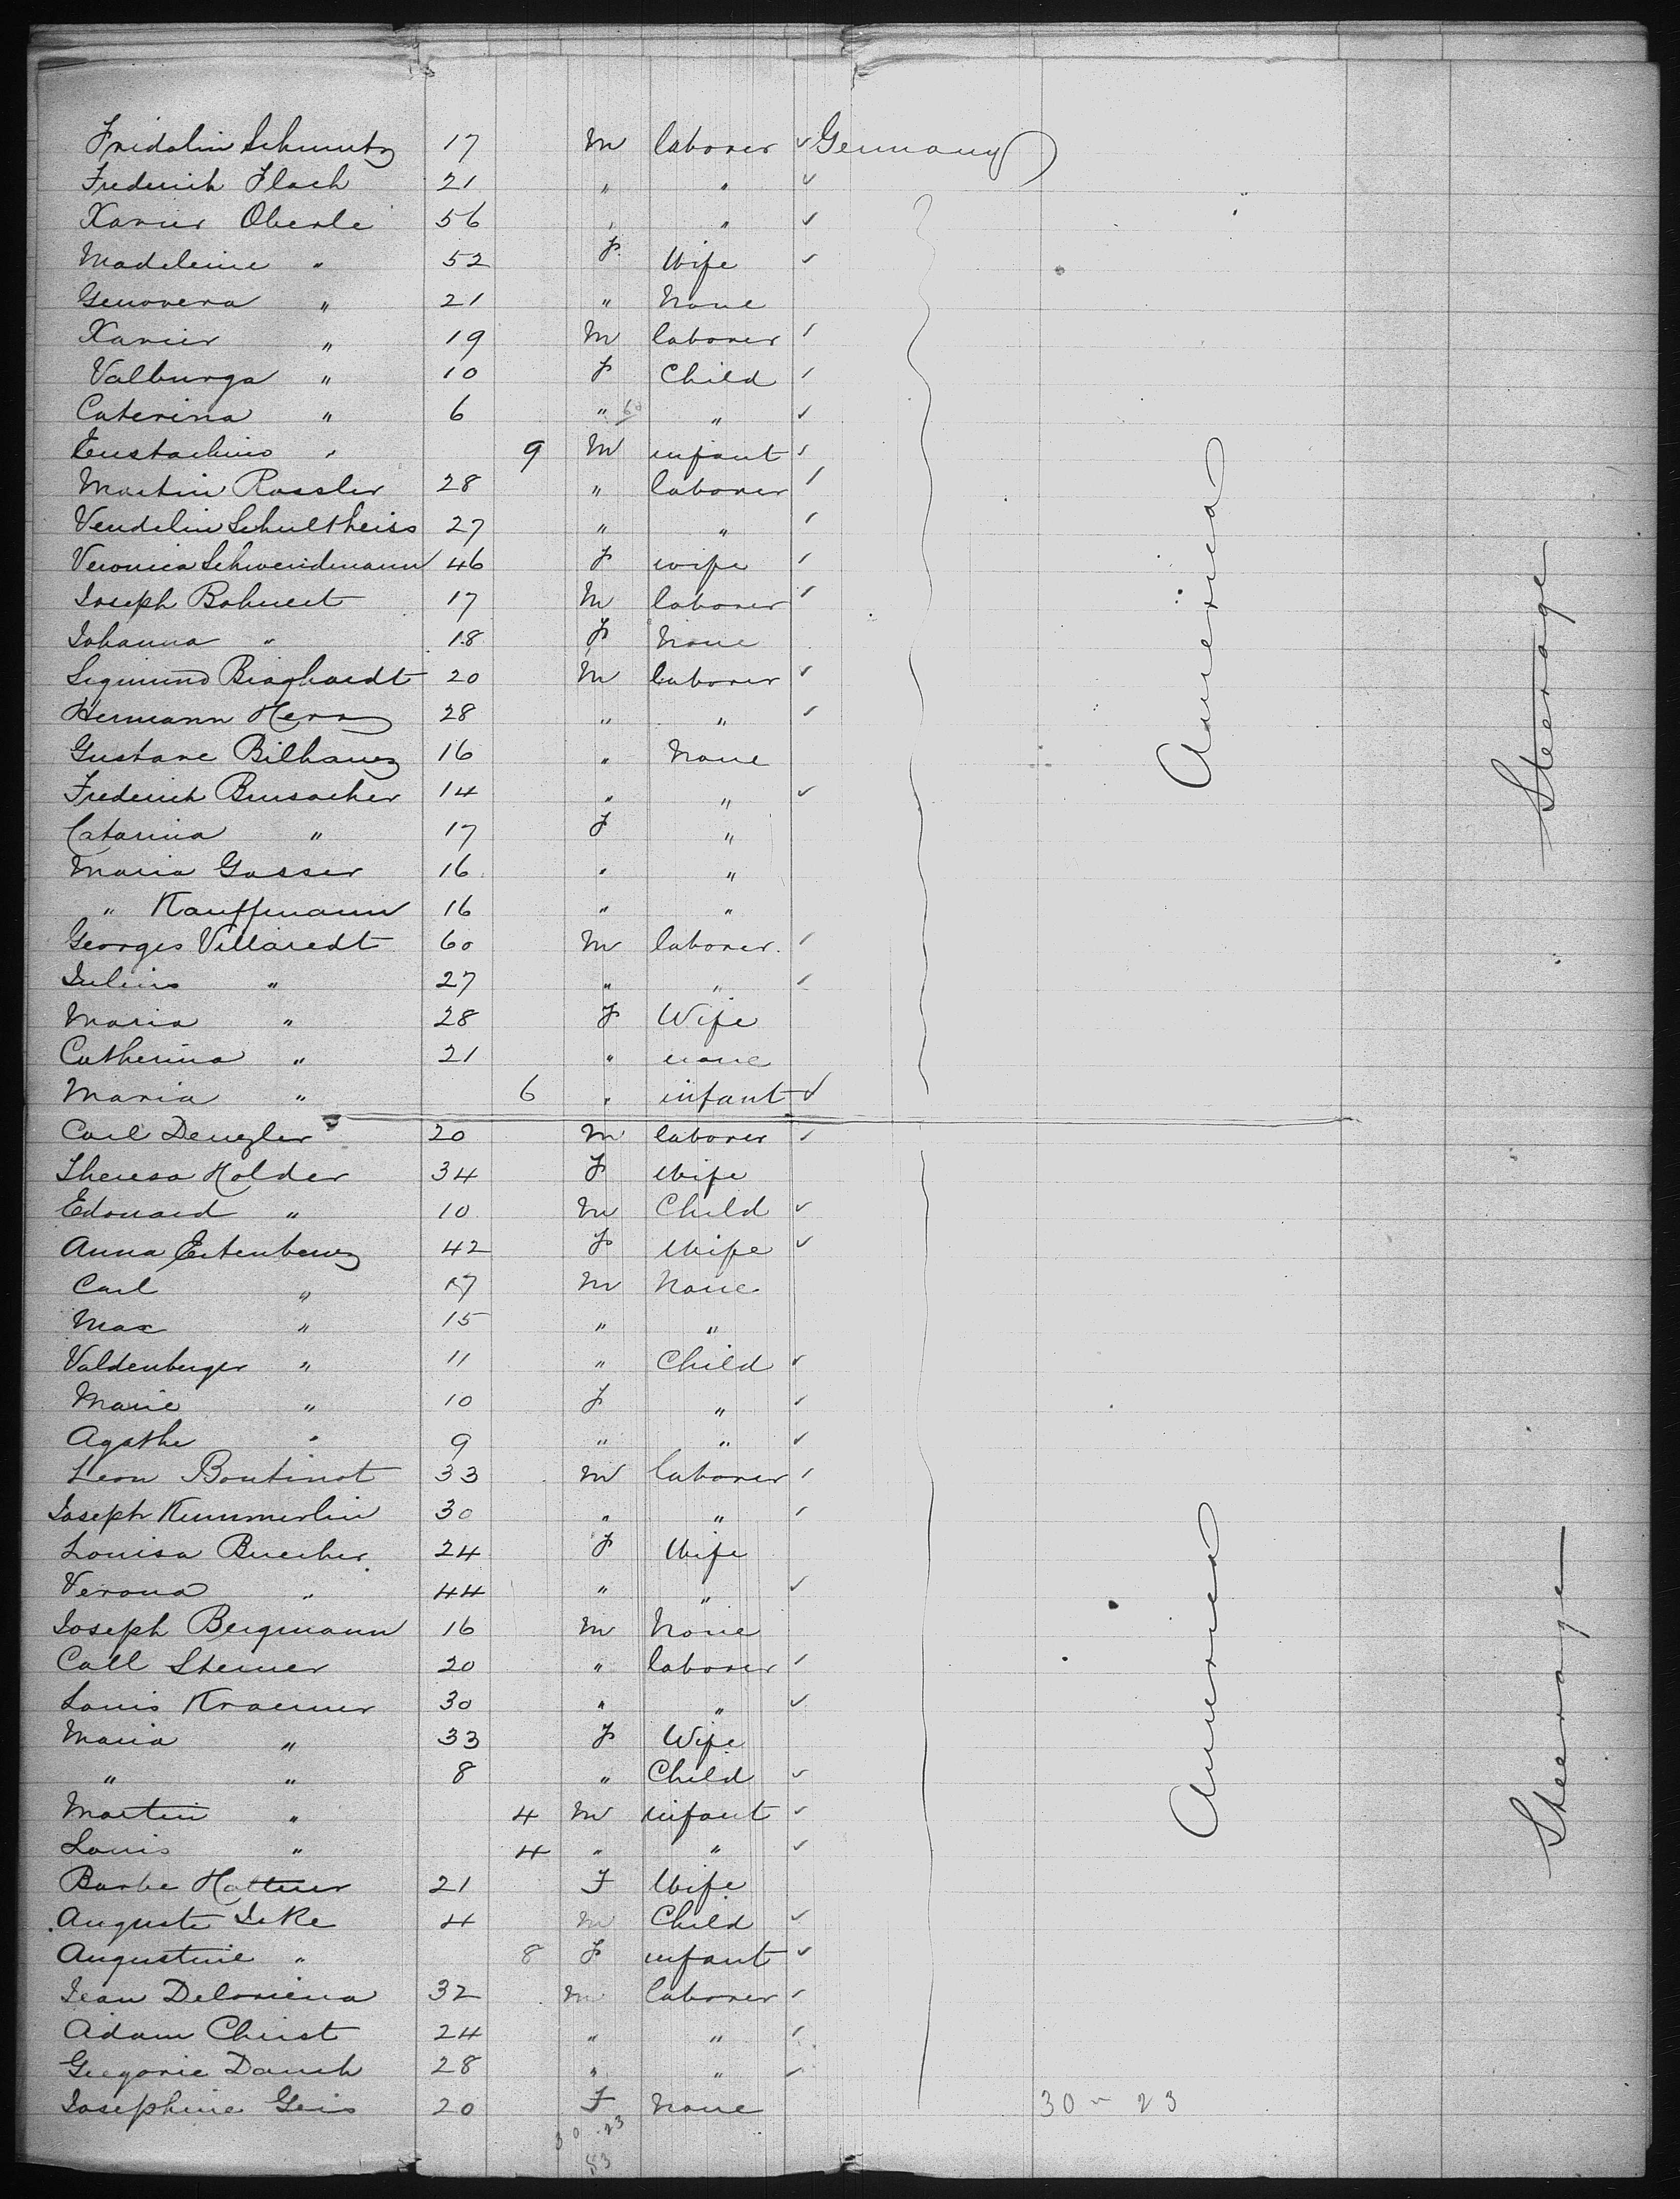 Fridolin Schmutz 17 M laborer ✓ Germany
Frederich Flach 21 " " ✓
Xavier Oberle 56 " " ✓
Madeleine " 52 F Wife ✓
Genovera " 21 " None
Xavier " 19 M laborer ✓
Valburga " 10 F Child ✓
Caterina " 6 " 60 " ✓
Eustachino " 9 M infant ✓
Martin Rossler 28 " laborer ✓
Vendelin Schultheiss 27 " " ✓
Veronica Schwendemann 46 F wife ✓
Joseph Bohnert 17 M laborer ✓
Johanna " 18 F None
Sigmund Beaghardt 20 M laborer ✓
Hermann Herz 28 " " ✓
Gustave Bilhauez 16 " None
Frederich Brusacher 14 " " ✓
Catarina " 17 F "
Maria Gasser 16 " "
" Kauffmann 16 " "
Georges Villaredt 60 M laborer ✓
Julius " 27 " " ✓
Maria " 28 F Wife
Catherina " 21 " none
Maria " 6 " infant ✓
America
Steerage
Carl Denzler 20 M laborer ✓
Theresa Holder 34 F Wife
Edouard " 10 M Child ✓
Anna Ertenbenz 42 F Wife ✓
Carl " 17 M None
Max " 15 " "
Valdenberger " 11 " Child ✓
Marie " 10 F " ✓
Agathe " 9 " " ✓
Leon Boutinot 33 M laborer ✓
Joseph Kummerlin 30 " " ✓
Louisa Buecher 24 F Wife
Verona " 44 " " ✓
Joseph Bergmann 16 M None
Call Steiner 20 " laborer ✓
Louis Kraemer 30 " " ✓
Maria " 33 F Wife
" " 8 " Child ✓
Martin " 4 M infant ✓
Louis " 4 " " ✓
Barbe Hattuer 21 F Wife
Auguste Jeke 4 M Child ✓
Augustine " 8 F infant ✓
Jean Deloriena 32 M laborer ✓
Adam Christ 24 " " ✓
Gregorie Daush 28 " " ✓
Josephine Geis 20 F None
America
Steerage
30 - 23
30 - 23
53